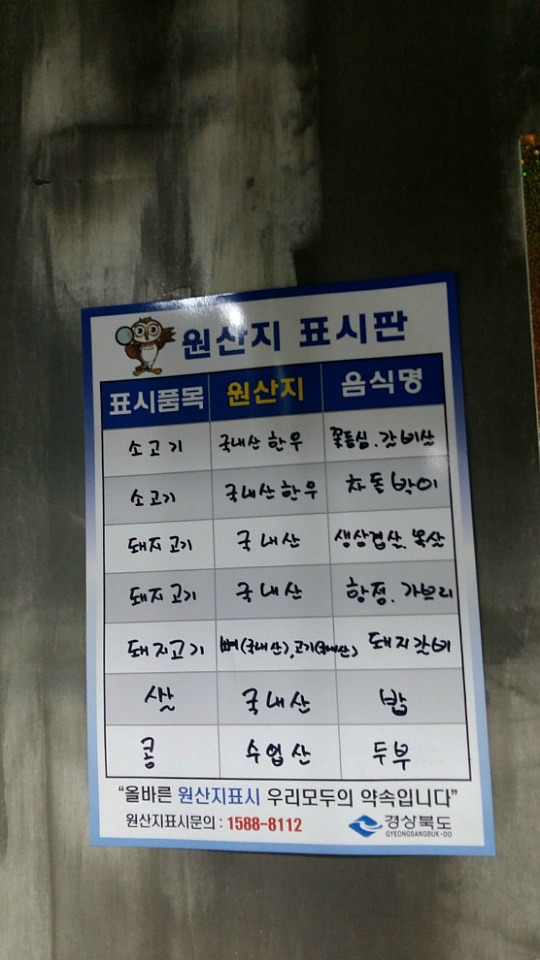 원산지 표시판
표시품목 원산지 음식명
소고기 국내산 한우 꽃등심. 갈비살
소고기 국내산 한우 차돌박이
돼지고기 국내산 생삼겹살, 목살
돼지고기 국내산 항정. 가브리
돼지고기 뼈(국내산),고기(국내산) 돼지갈비
쌀 국내산 밥
콩 수입산 두부
“올바른 원산지표시 우리모두의 약속입니다”
원산지표시문의 : 1588-8112 경상북도
GYEONGSANGBUK-DO